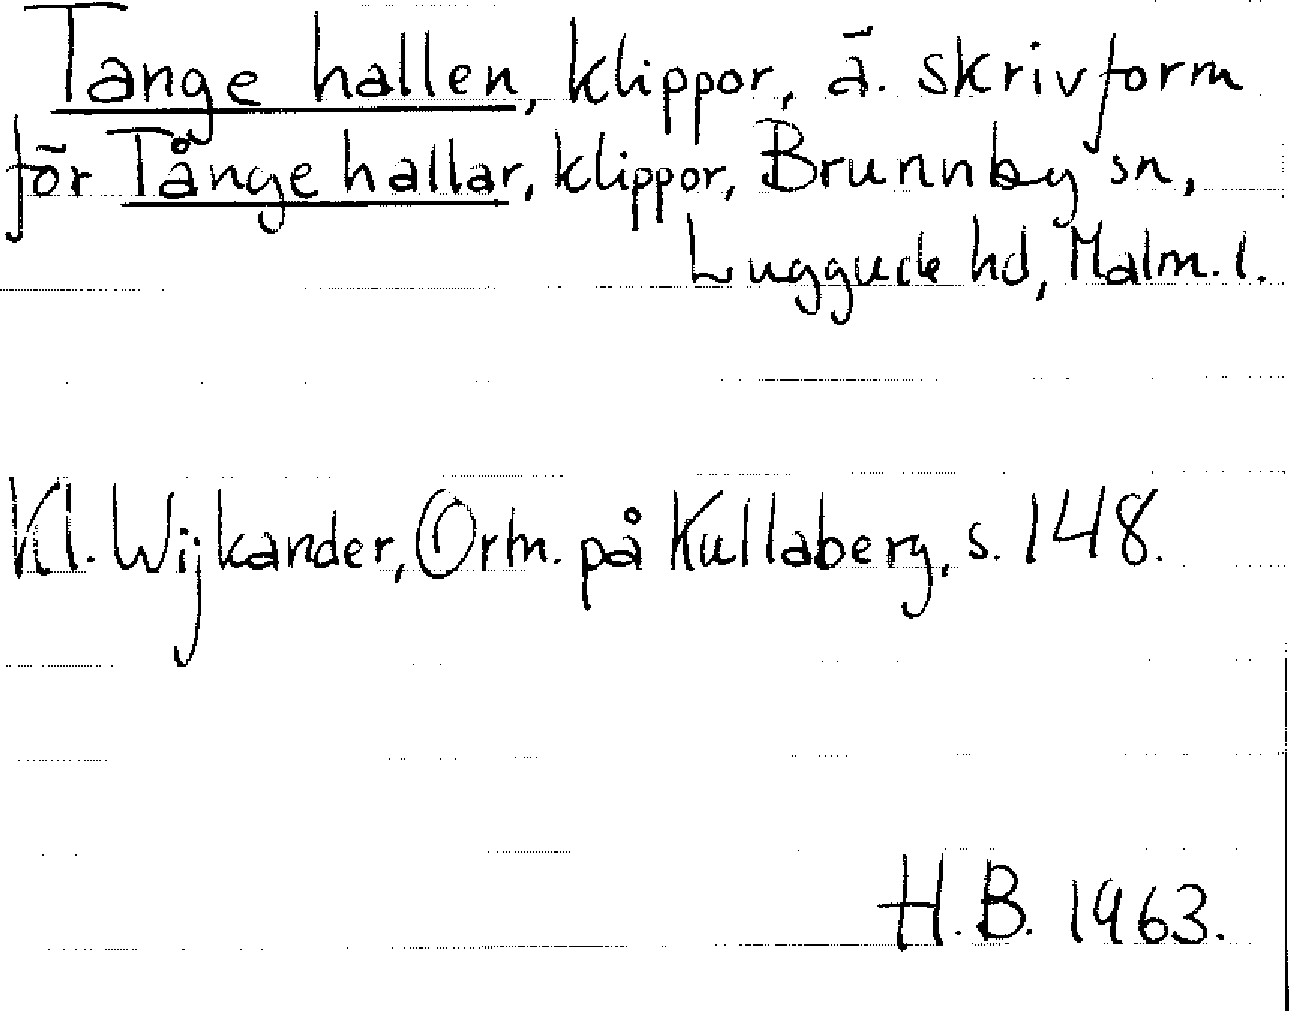 Tange hallen, klippor, ä. skrivform
för Tånge hallar, klippor, Brunnby sn,
Luggude hd, Malm. l.
Kl. Wijkander, Ortn. på Kullaberg, s. 148.
H.B. 1963.